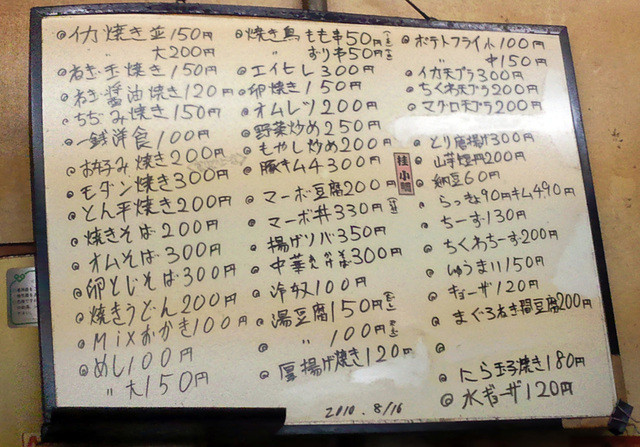 イカ焼き並150円
〃 大200円
ねぎ玉焼き150円
ねぎ醤油焼き120円
ちぢみ焼き150円
一銭洋食100円
お好み焼き200円
モダン焼き300円
とん平焼き200円
焼きそば200円
オムそば300円
卵とじそば300円
焼きうどん200円
Mixおかき100円
めし100円
〃 大150円
焼き鳥もも串50円
ずり串50円
エイヒレ300円
卵焼き150円
オムレツ200円
野菜炒め250円
もやし炒め200円
豚キムチ300円
マーボ豆腐200円
マーボ丼330円
揚げソバ350円
中華そば300円
冷奴100円
湯豆腐150円
〃 100円
厚揚げ焼き120円
2010.8/16
ポテトフライ小100円
〃 中150円
イカ天プラ300円
ちくわ天プラ200円
マグロ天プラ200円
とり唐揚げ300円
山芋短冊200円
納豆60円
らっきょ90円キムチ90円
ちーず130円
ちくわちーず200円
しゅうまい150円
ギョーザ120円
まぐろねぎ間豆腐200円
にら玉子焼き180円
水ギョーザ120円
桂小鯛